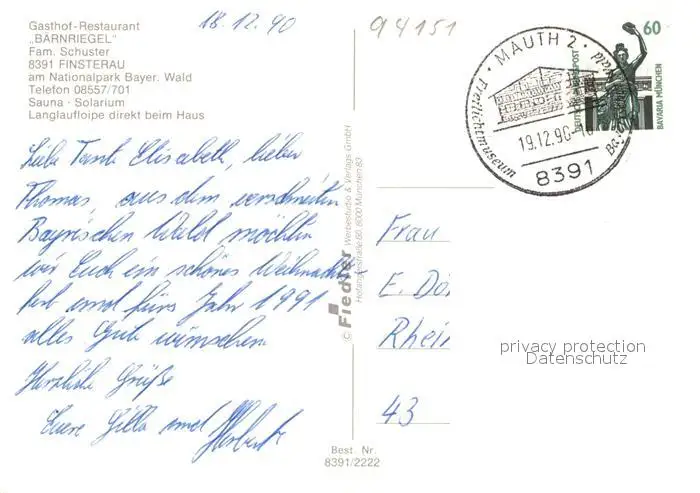 18.12.90
94151
Gasthof-Restaurant
„BÄRNRIEGEL"
Fam. Schuster
8391 FINSTERAU
am Nationalpark Bayer. Wald
Telefon 08557/701
Sauna · Solarium
Langlaufloipe direkt beim Haus
Liebe Tante Elisabeth, lieber
Thomas, aus dem verschneiten
Bayrischen Wald möchten
wir Euch ein schönes Weihnachts-
fest und fürs Jahr 1991
alles Gute wünschen.
Herzliche Grüße
Eure Gilla und Herbert
© Fiedler Werbestudio & Verlags GmbH
8000 München 83
Best. Nr.
8391/2222
MAUTH 2
Freilichtmuseum
19.12.90
8391
DEUTSCHE BUNDESPOST
60
BAVARIA MÜNCHEN
Frau
E.
43
privacy protection
Datenschutz